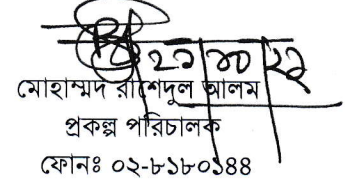 ২১/১০/২১
মোহাম্মদ রাশেদুল আলম
প্রকল্প পরিচালক
ফোনঃ ০২-৮১৮০১৪৪